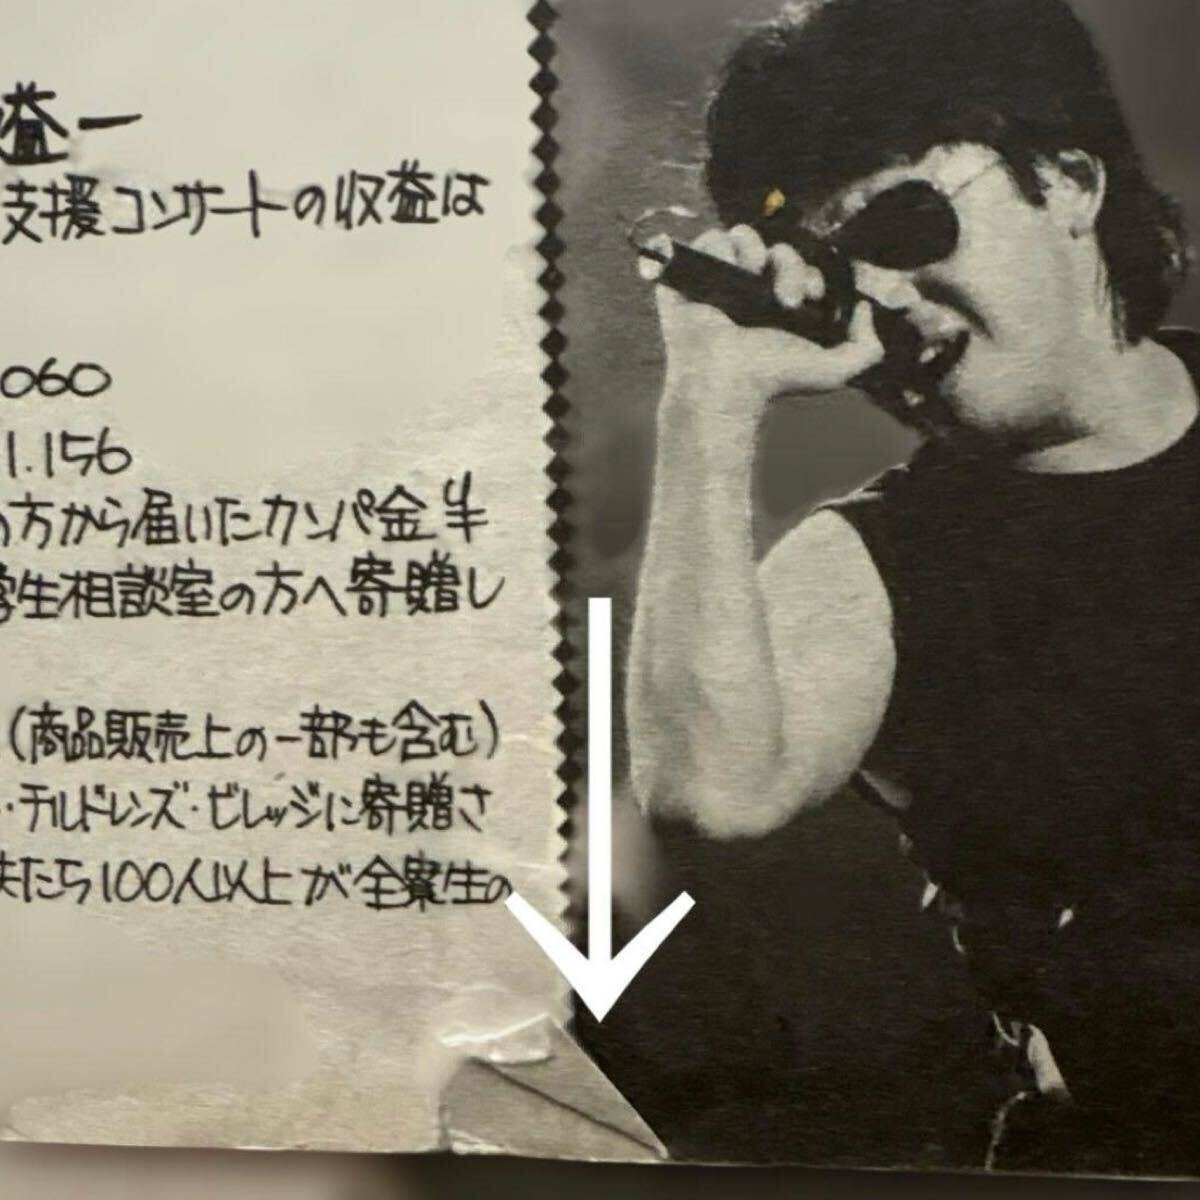 益一
支援コンサートの収益は
060
1.156
の方から届いたカンパ金半
学生相談室の方へ寄贈し
(商品販売上の一部も含む)
・チルドレンズ・ビレッジに寄贈さ
たら100人以上が全寮生の